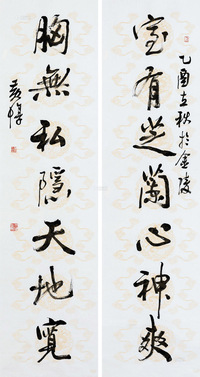 室有芝蘭心神爽
乙酉立秋於金陵
胸無私隱天地寬